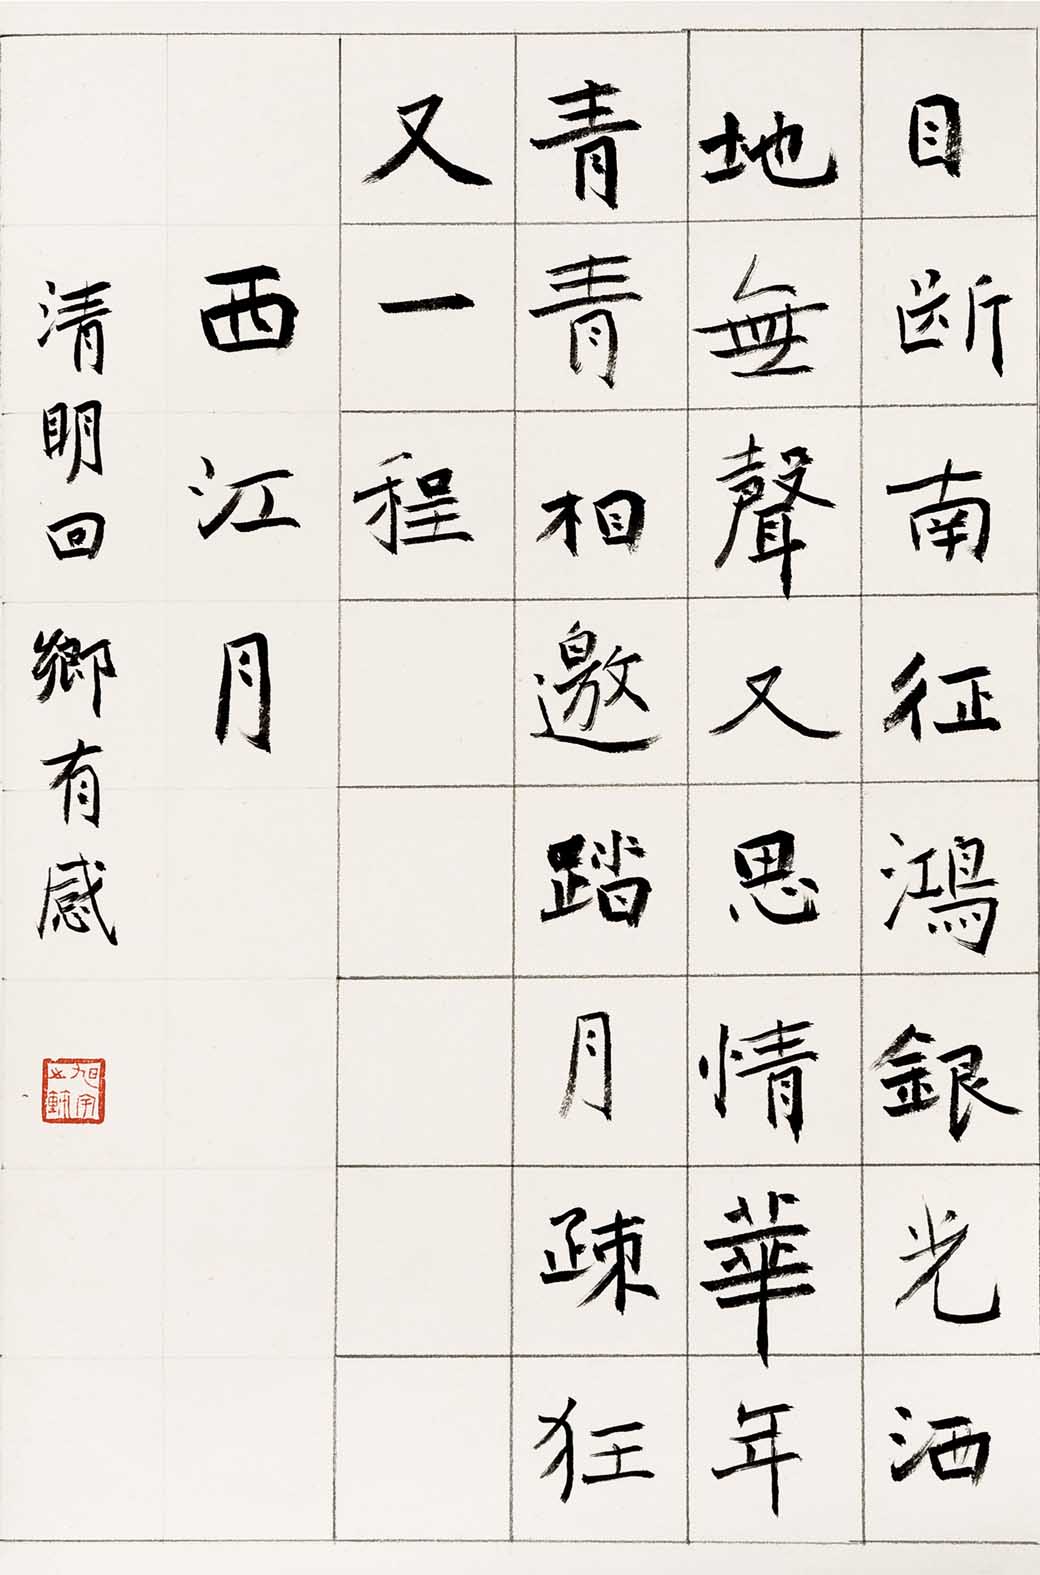 目断南征鴻銀光洒
地無聲又思情華年
青青相邀踏月疎狂
又一程
西江月
清明回鄉有感
旭宇之軒